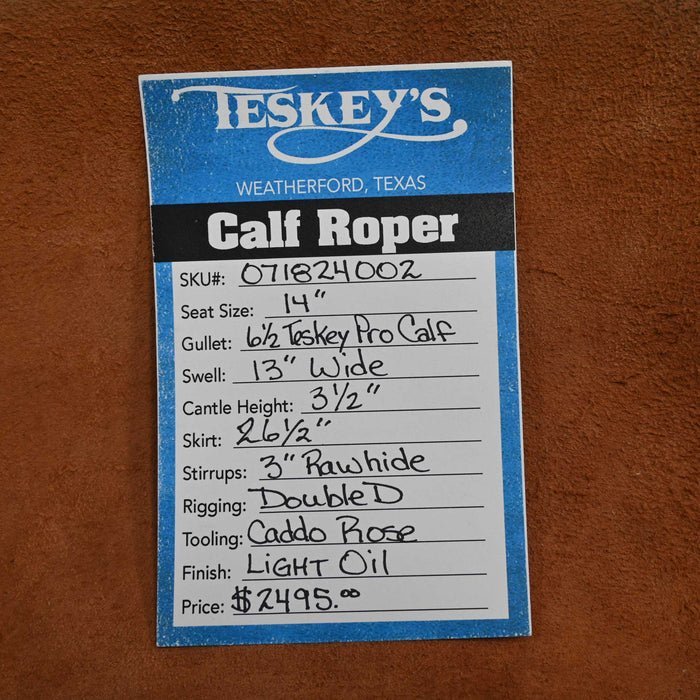 TESKEY'S
WEATHERFORD, TEXAS
Calf Roper
SKU#: 071824002
Seat Size: 14"
Gullet: 6½ Teskey Pro Calf
Swell: 13" Wide
Cantle Height: 3½"
Skirt: 26½"
Stirrups: 3" Rawhide
Rigging: Double D
Tooling: Caddo Rose
Finish: LIGHT Oil
Price: $2495.00